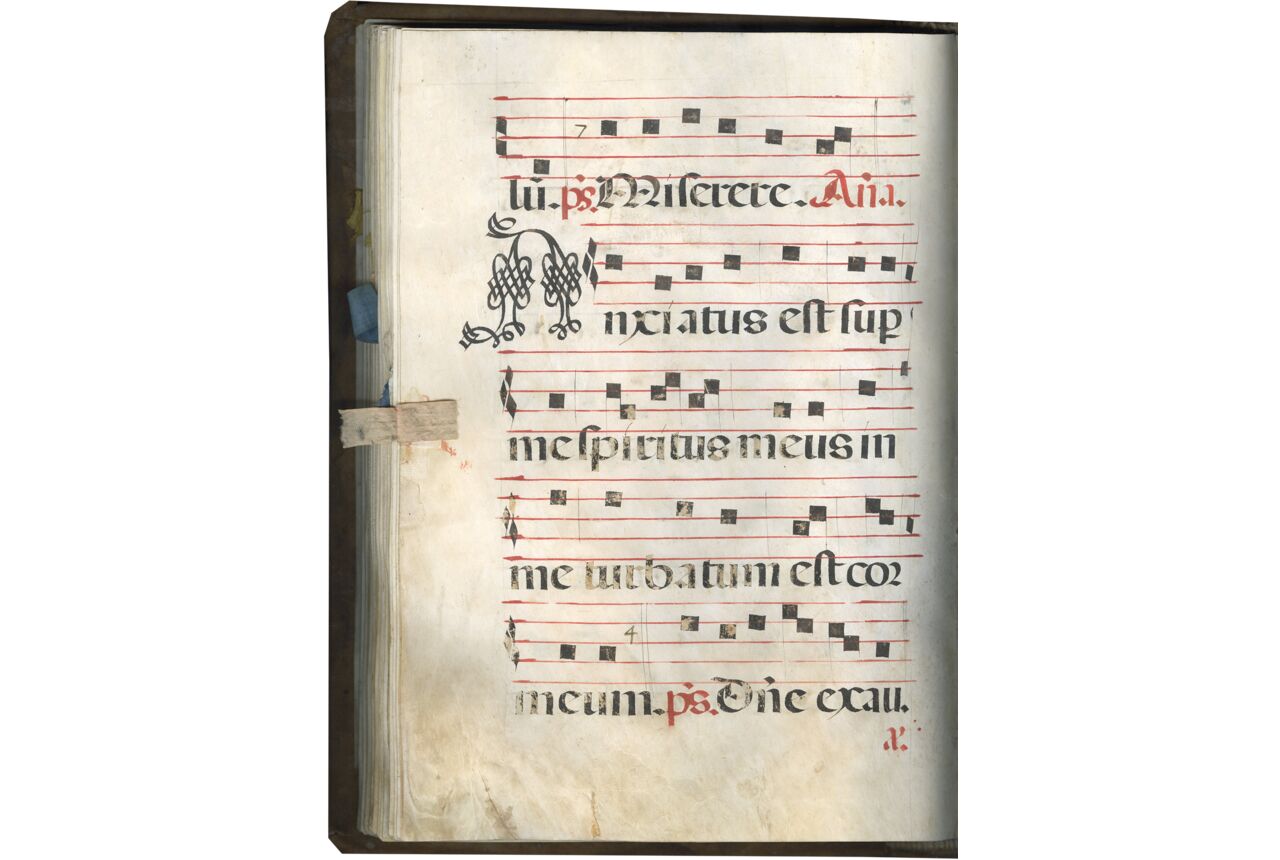 7
lū. ps. Miserere. Aña.
Anxiatus est sup
me spiritus meus in
me turbatum est cor
4
meum. ps. Dñe exau.